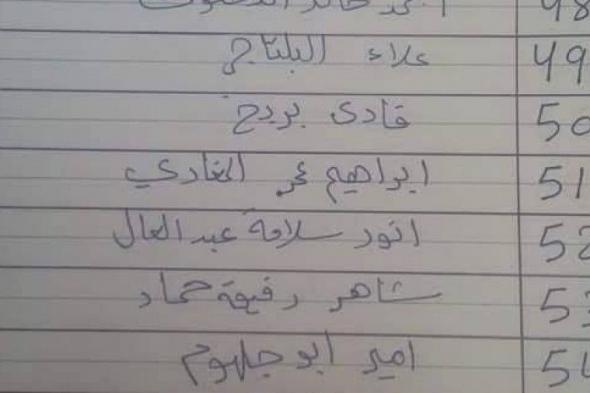 48
49 علاء البلتاجي
50 فادي بريدج
51 ابراهيم عمر الغادي
52 انور سلامة عبد العال
53 شاهر رفيقة حماد
54 امير ابو جلهوم